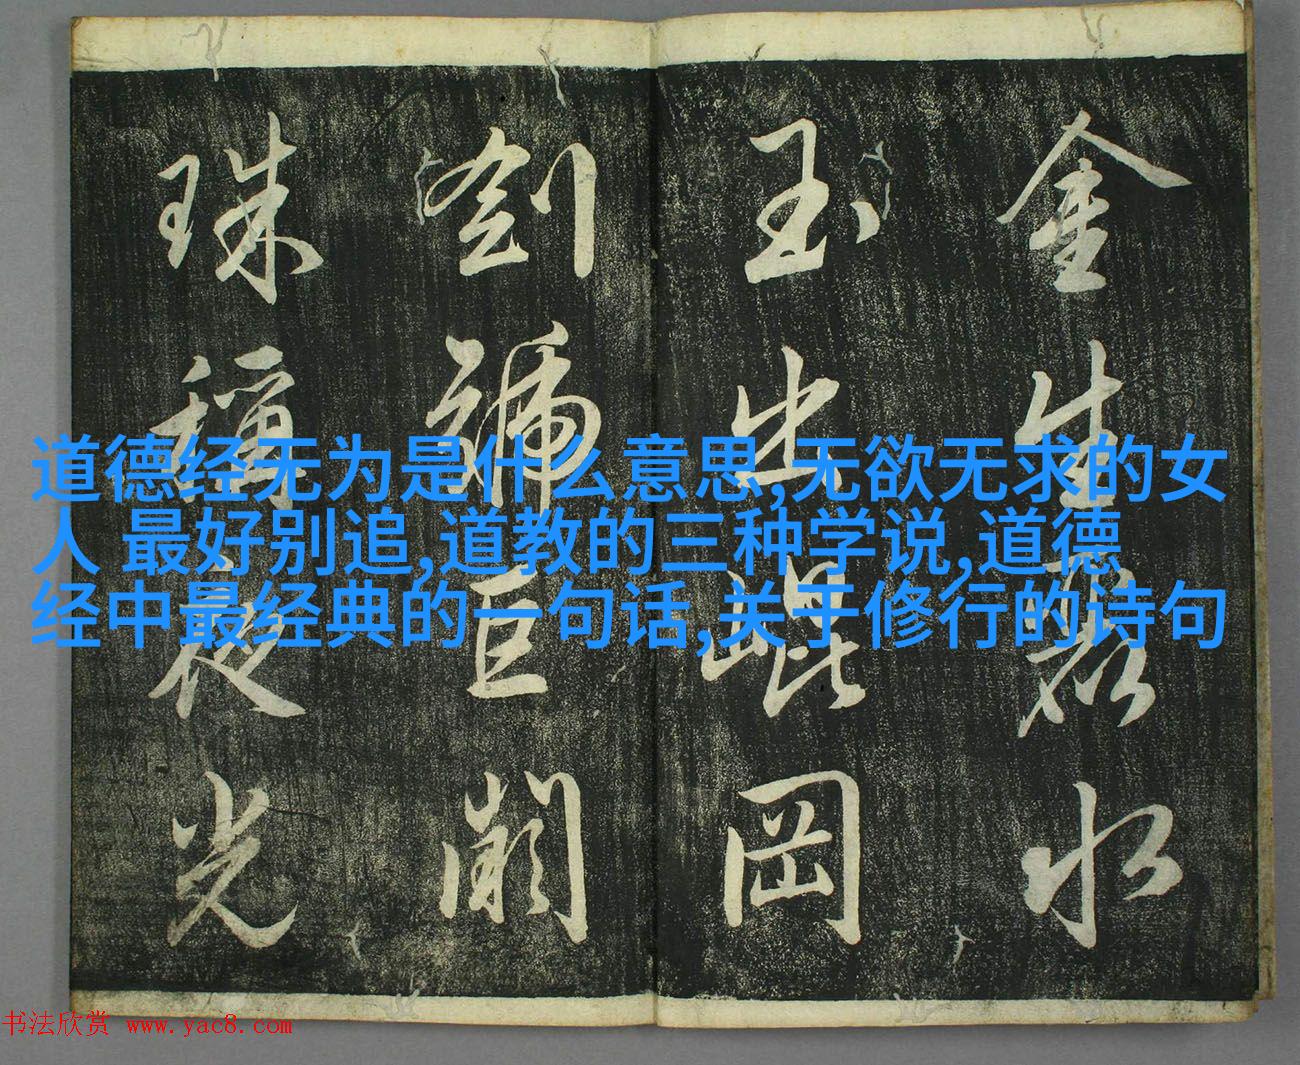 金生麗水
玉出崐岡
劍號巨闕
珠稱夜光
道德经无为是什么意思,无欲无求的女
人 最好别追,道教的三种学说,道德
经中最经典的一句话,关于修行的诗句
书法欣赏 www.yac8.com